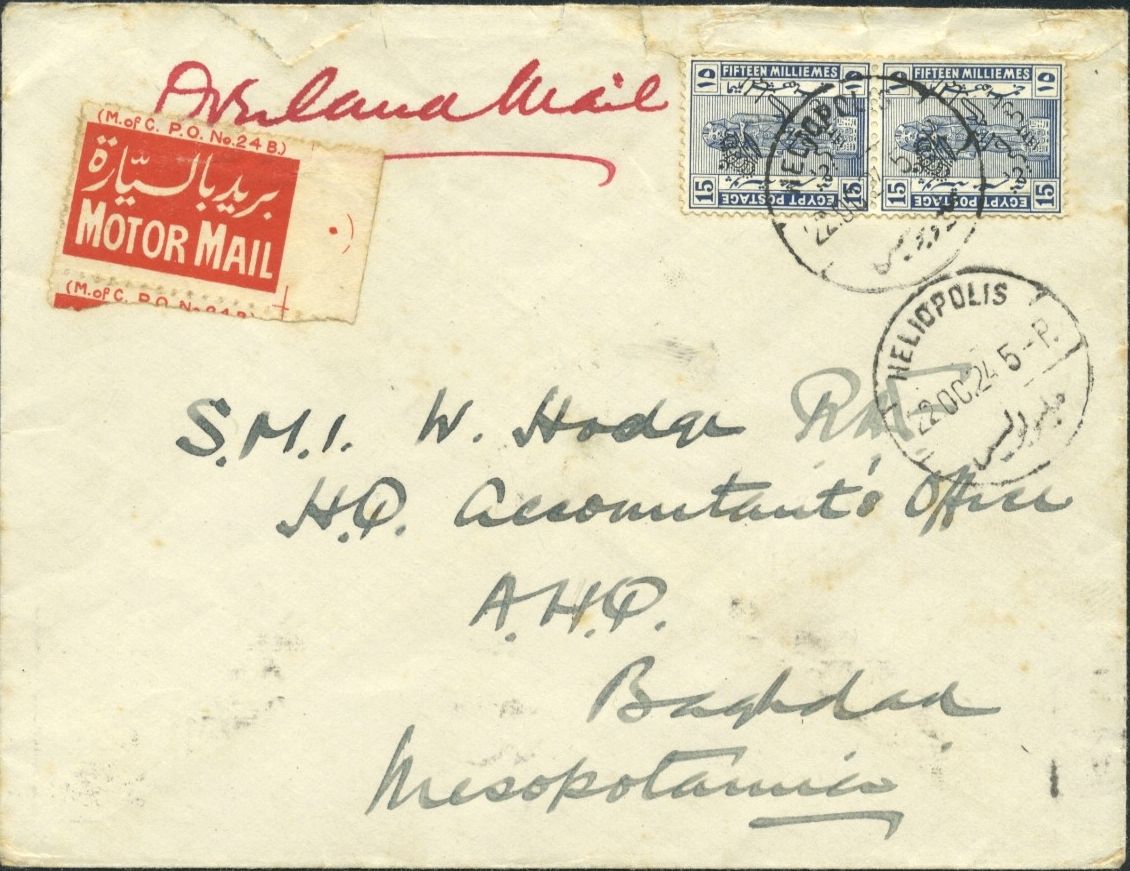 Overland Mail
(M. of C. P. O. No. 24 B.)
بريد بالسيّارة
MOTOR MAIL
(M. of C. P. O. No. 24 B)
FIFTEEN MILLIEMES
١٥ ١٥
15 EGYPT POSTAGE 15
FIFTEEN MILLIEMES
١٥ ١٥
15 EGYPT POSTAGE 15
HELIOPOLIS
22 OC 24 5-P.
هليوبوليس
HELIOPOLIS
22 OC 24 5-P.
هليوبوليس
S.M.I. W. Hodge RAF
H.Q. Accountant's Office
A.H.Q.
Baghdad
Mesopotamia